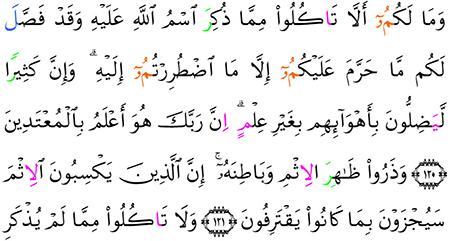 وَمَا لَكُمُۥٓ أَلَّا تَاكُلُوا۟ مِمَّا ذُكِرَ ٱسْمُ ٱللَّهِ عَلَيْهِ وَقَدْ فَصَّلَ
لَكُم مَّا حَرَّمَ عَلَيْكُمُۥٓ إِلَّا مَا ٱضْطُرِرْتُمُۥٓ إِلَيْهِ ۗ وَإِنَّ كَثِيرًا
لَّيَضِلُّونَ بِأَهْوَآئِهِم بِغَيْرِ عِلْمٍ ۗ اِنَّ رَبَّكَ هُوَ أَعْلَمُ بِٱلْمُعْتَدِينَ
﴿١٢٠﴾ وَذَرُوا۟ ظَٰهِرَ ٱلِاثْمِ وَبَاطِنَهُۥٓ ۚ إِنَّ ٱلَّذِينَ يَكْسِبُونَ ٱلِاثْمَ
سَيُجْزَوْنَ بِمَا كَانُوا۟ يَقْتَرِفُونَ ﴿١٢١﴾ وَلَا تَاكُلُوا۟ مِمَّا لَمْ يُذْكَرِ